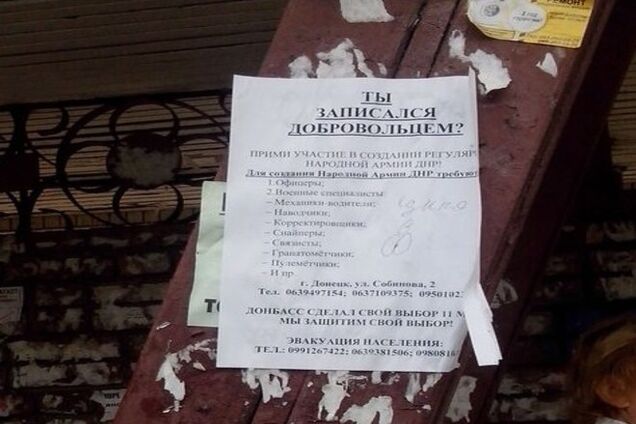 РЕМОНТ
ТЫ
ЗАПИСАЛСЯ
ДОБРОВОЛЬЦЕМ?
ПРИМИ УЧАСТИЕ В СОЗДАНИИ РЕГУЛЯР
НАРОДНОЙ АРМИИ ДНР!
Для создания Народной Армии ДНР требую
1.Офицеры;
2.Военные специалисты:
– Механики-водители;
– Наводчики;
– Корректировщики;
– Снайперы;
– Связисты;
– Гранатомётчики;
– Пулемётчики;
– И пр
г. Донецк, ул. Собинова, 2
Тел. 0639497154; 0637109375; 09501022
ДОНБАСС СДЕЛАЛ СВОЙ ВЫБОР 11 М
МЫ ЗАЩИТИМ СВОЙ ВЫБОР!
ЭВАКУАЦИЯ НАСЕЛЕНИЯ:
ТЕЛ.: 0991267422; 0639381506; 0980816